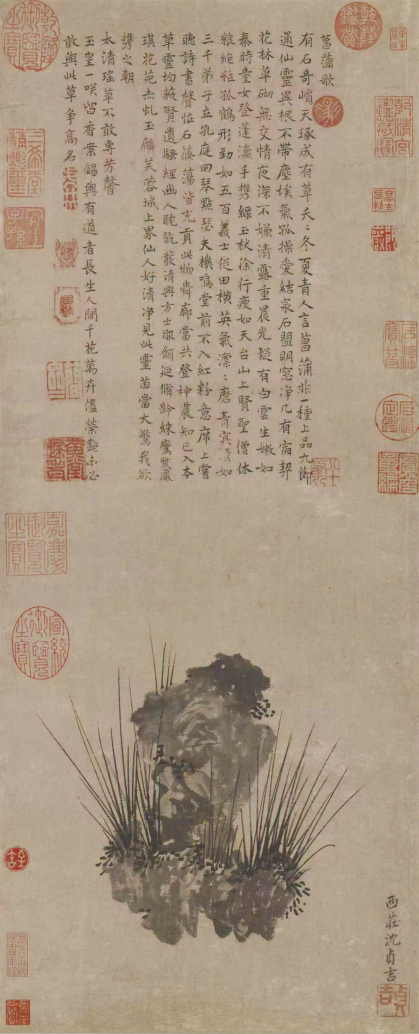 菖蒲歌
有石奇峭天琢成有草夭夭冬夏青人言菖蒲非一種上品九節
通仙靈異根不帶塵埃氣孤操愛結泉石盟明窓净几有宿契
花林草砌無交情夜深不嫌清露重晨光疑有白雲生嫩如
秦時童女登蓬瀛手携緑玉杖徐行瘦如天台山上賢聖僧休
粮絶粒孤鶴形勁如五百義士從田横英氣凛凛磨青冥清如
三千弟子立孔庭回琴點瑟天機鳴堂前不入紅粉意席上嘗
聽詩書聲怪石篠簜皆充貢此物舜廊當共登神農知已入本
草靈均蔽賢遺騷經幽人耽翫發清興方士服餌延脩齡綵鸞紫鳳
琪花苑赤虬玉麟芙蓉城上界仙人好清净見此靈苗當大驚我欲
携之朝
太清瑶草不敢專芳馨
玉皇一咲留香案錫與有道者長生人間千花萬卉儘榮艷未必
敢與此草争高名
西莊沈貞吉
乾隆御覽之寶
乾隆鑑賞
三希堂精鑑璽
宜子孫
石渠寶笈
石渠定鑑
寶笈重編
嘉慶御覽之寶
宣統御覽之寶